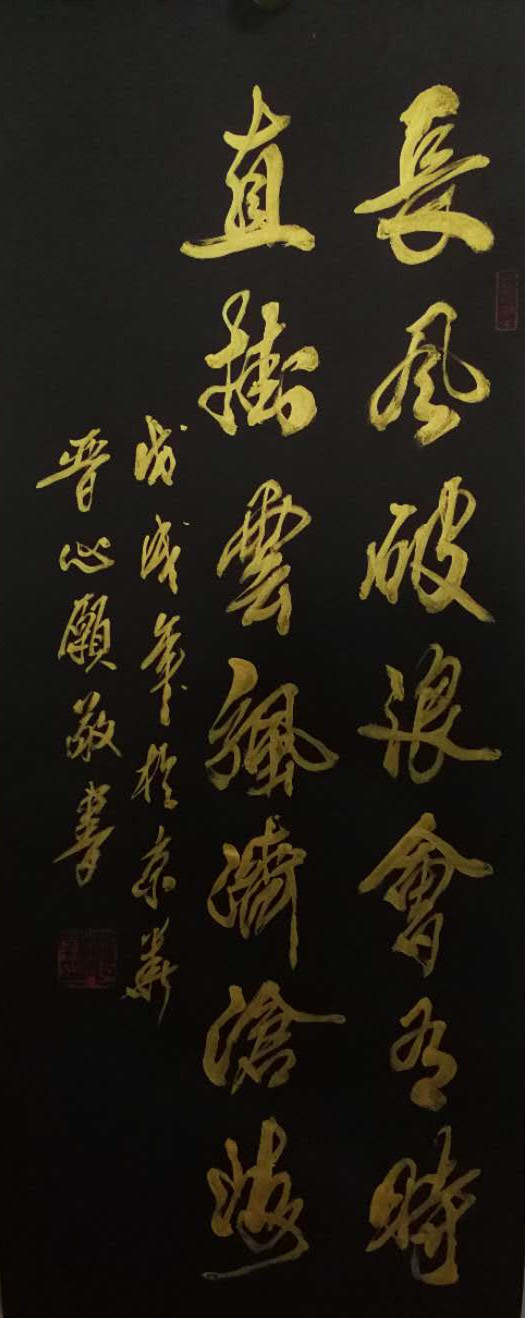 長風破浪會有時
直掛雲颿濟滄海
戊戌年於京華
晋心願敬書